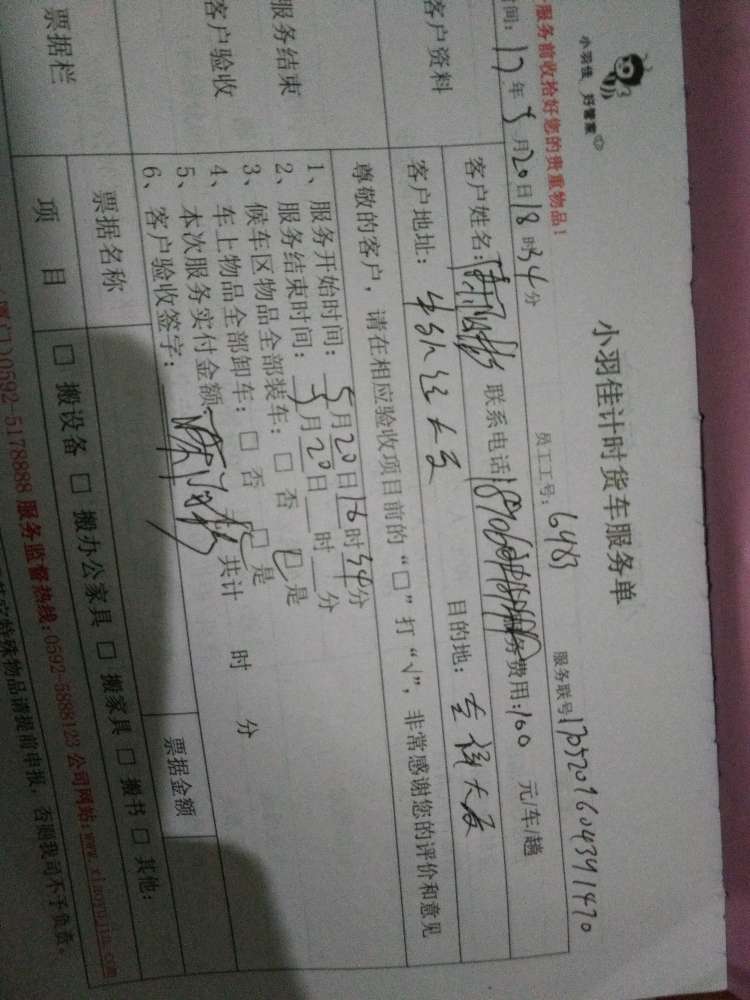 小羽佳 好管家
小羽佳计时货车服务单
服务前收拾好您的贵重物品！
员工工号：6483
服务联号
时间：17年5月20日18时34分
客户资料
客户姓名：
联系电话
服务费用：100 元/车/趟
客户地址：
目的地：
尊敬的客户，请在相应验收项目前的“□”打“√”，非常感谢您的评价和意见
服务结束
客户验收
1、服务开始时间：5月20日16时34分
2、服务结束时间：5月20日 时 分
3、候车区物品全部装车：□ 否 □ 是
4、车上物品全部卸车：□ 否 □ 是
5、本次服务实付金额： 共计 时 分
6、客户验收签字：
票据栏
票据名称
票据金额
项 目
□ 搬设备 □ 搬办公家具 □ 搬家具 □ 搬书 □ 其他：
0592-5178888 服务监督热线：0592-5888123 公司网站：www.xiaoyujia.com
特殊物品请提前申报，否则我司不予负责。